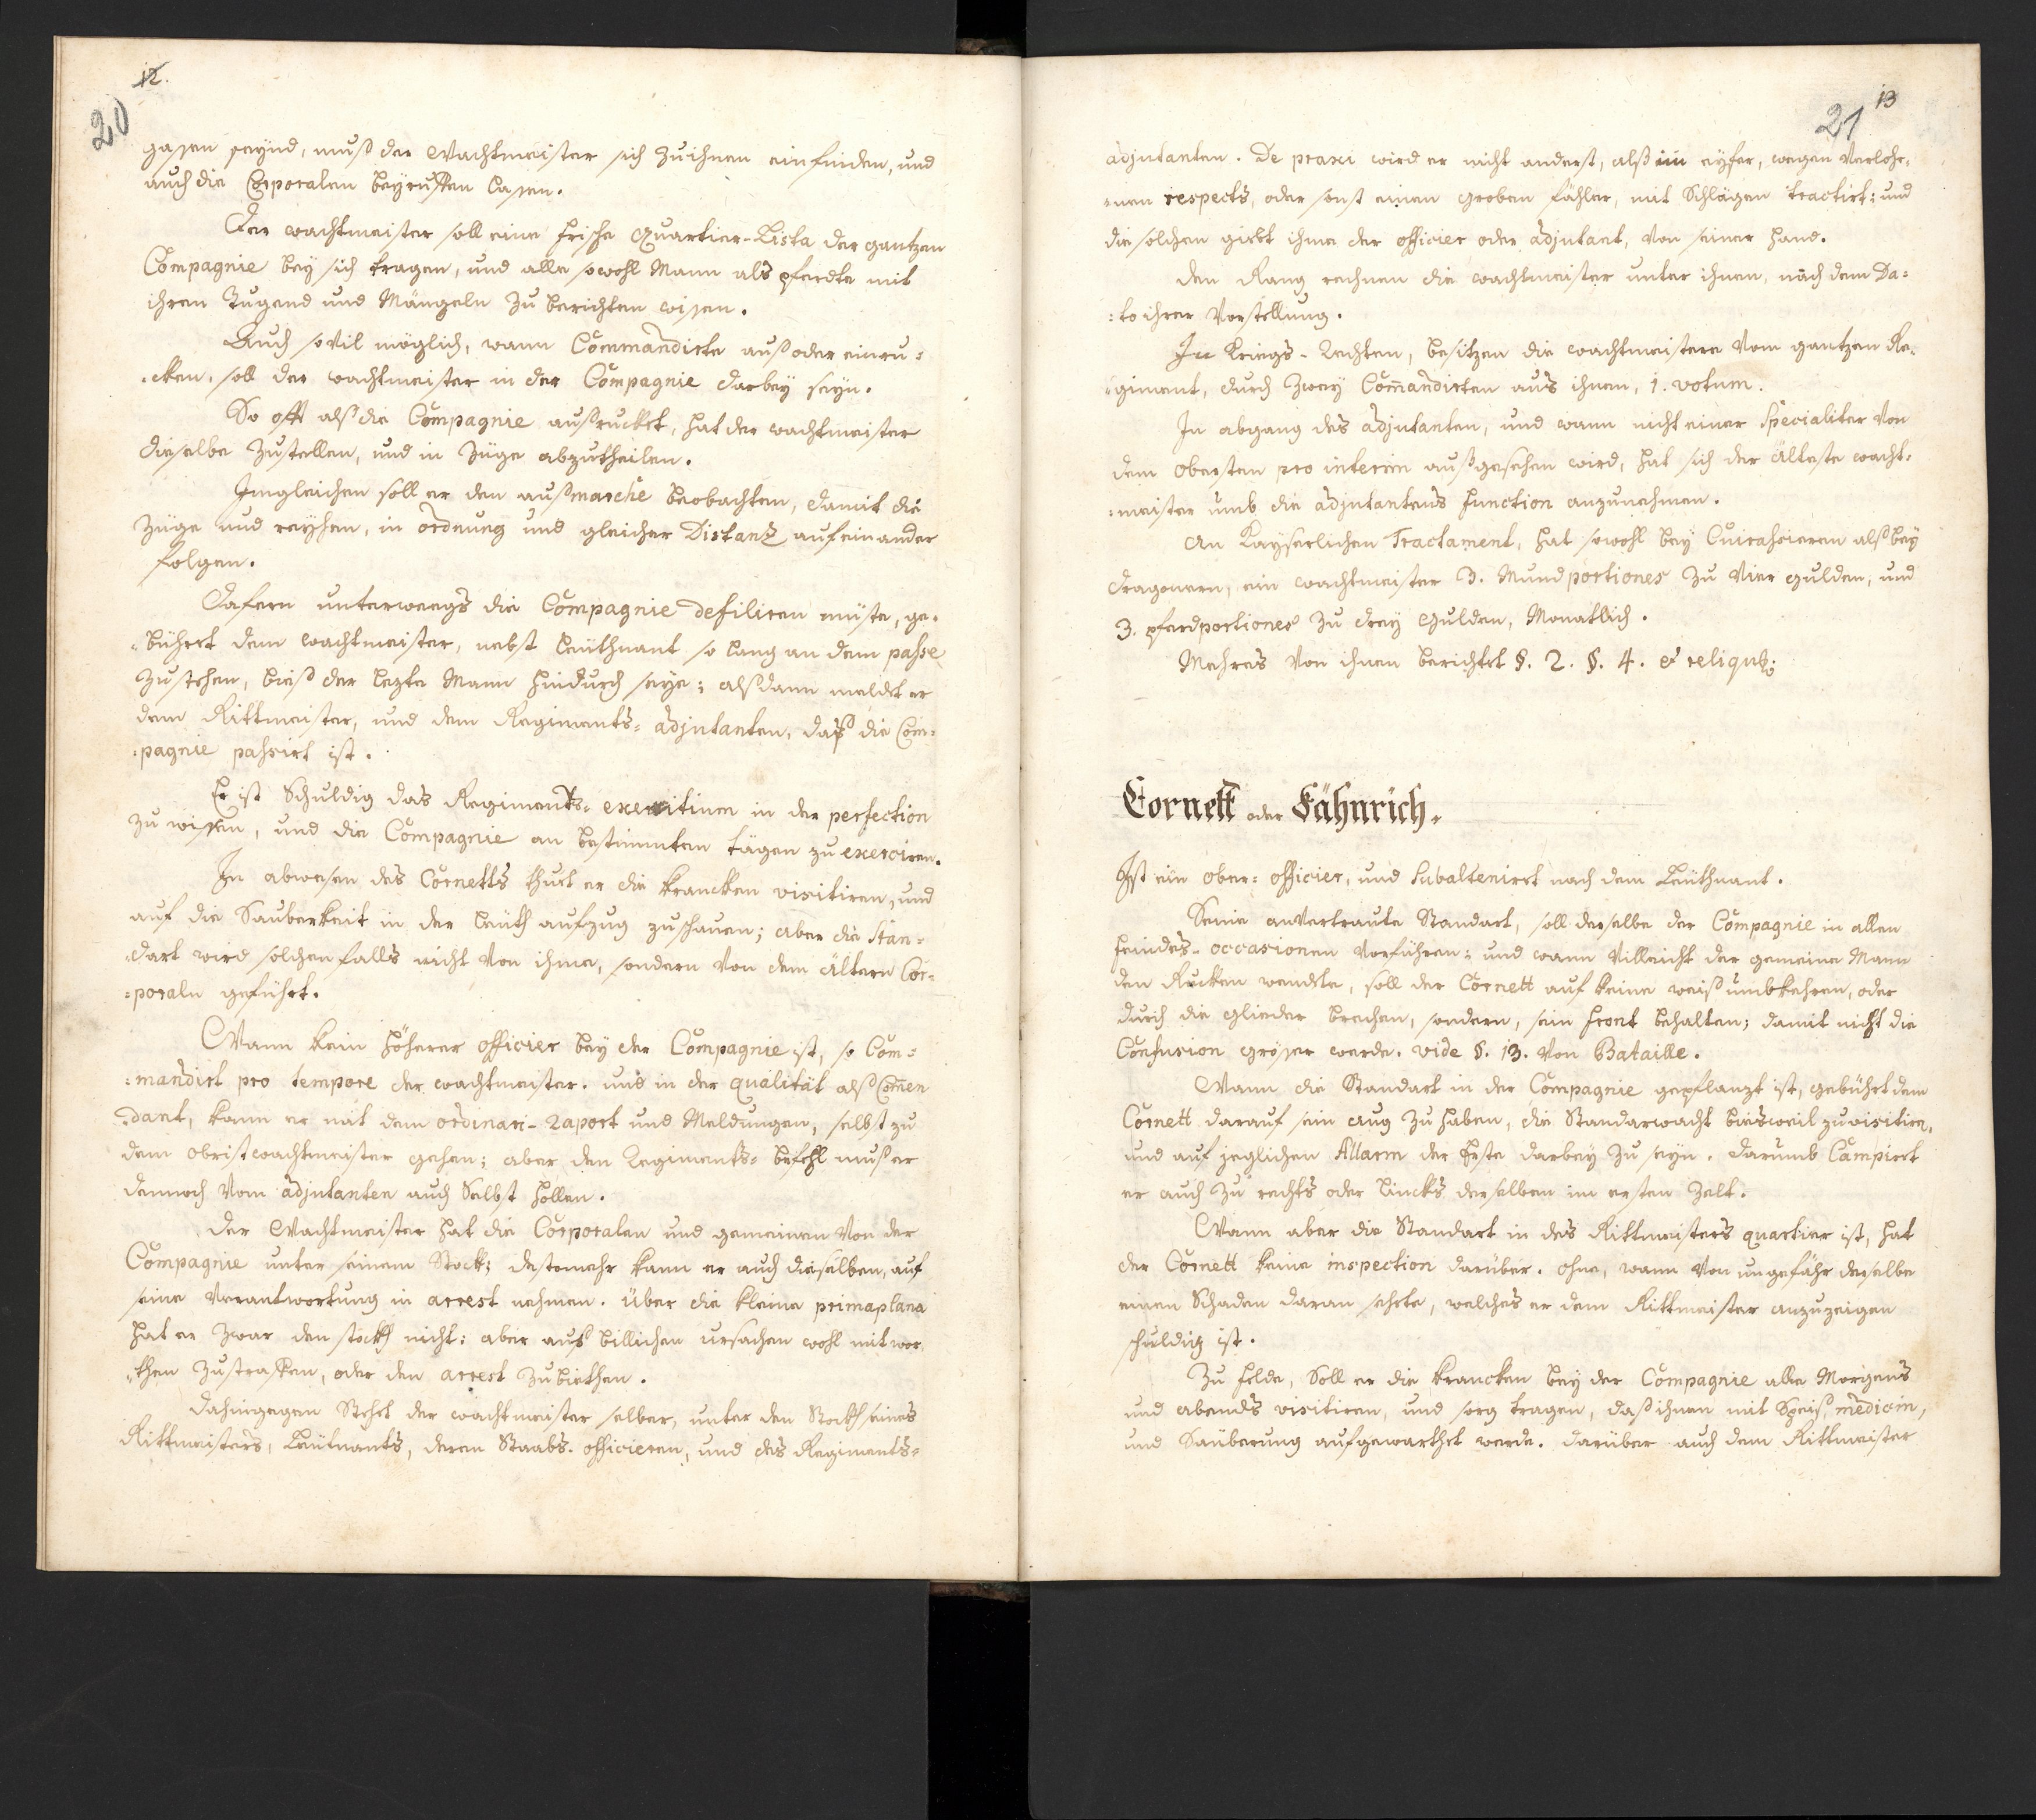 12.
20
gassen seynd, muß der Wachtmeister sich zuihnen einfinden, und
auch die Corporalen beyruffen lassen.
Der wachtmeister soll eine frische Quartier-Lista der gantzen
Compagnie bey sich tragen, und alle sowohl Mann als pferdte mit
ihren Tugend und Mängeln zu berichten wissen.
Auch sovil möglich, wann Commandirte auß oder einru=
=cken, soll der wachtmeister in der Compagnie darbey seyn.
So offt alß die Compagnie außrucket, hat der wachtmeister
dieselbe zustellen, und in Züge abzutheilen.
Imgleichen soll er den außmarche beobachten, damit die
Züge und reyhen, in ordnung und gleicher Distantz aufeinander
folgen.
Dafern unterweegs die Compagnie defiliren müste, ge=
=bühret dem wachtmeister, nebst Leuthnant so lang an dem passe
zustehen, bieß der lezte Mann hindurch seye; alßdann meldet er
dem Rittmeister, und dem Regiments=adjutanten, daß die Com=
=pagnie passirt ist.
Er ist Schuldig das Regiments=exercitium in der perfection
zu wissen, und die Compagnie an bestimmten tägen zu exerciren.
In abwesen des Cornetts thuet er die krancken visitiren, und
auf die Sauberkeit in der Leuth aufzug zuschauen; aber die Stan=
=dart wird solchenfalls nicht von ihme, sondern von dem ältern Cor=
=poraln geführt.
Wann kein höherer officier bey der Compagnie ist, so Com=
=mandirt pro tempore der wachtmeister. und in der qualität alß Com̄en
=dant, kann er mit dem ordinari-raport und Meldungen, selbst zu
dem obristwachtmeister gehen; aber den Regiments=befehl muß er
dennoch vom adjutanten auch Selbst hollen.
Der Wachtmeister hat die Corporalen und gemeinen von der
Compagnie unter seinem Stock; destomehr kann er auch dieselben, auf
seine verantwortung in arrest nehmen. über die kleine primaplana
hat er zwar den stockh nicht; aber auß billichen ursachen wohl mit wor
=then zustraffen, oder den arrest zubiethen.
Dahingegen Stehet der wachtmeister selber, unter den Stockh seines
Rittmeisters, Leutnants, deren Staabs-officieren, und des Regiments=
13
21
adjutanten. De praxi wird er nicht anderst, alß im eyfer, wegen verlohr=
=nen respects, oder sonst einen groben fähler, mit Schlägen tractirt: und
die solchen giebt ihme der officier oder adjutant, von seiner hand.
Den Rang rechnen die wachtmeister unter ihnen, nach dem Da=
=to ihrer vorstellung.
In Kriegs-Rechten, besitzen die wachtmeistere vom gantzen Re=
=giment, durch zwey Com̄andirten aus ihnen, 1. votum.
In abgang des adjutanten, und wann nicht einer Specialiter von
dem obersten pro interim außgesehen wird, hat sich der älteste wacht=
=meister umb die adjutantens function anzunehmen.
An Kayserlichen Tractament, hat sowohl bey Cuirassieren alß bey
dragonern, ein wachtmeister 3. Mundportiones zu vier gulden, und
3. pferdportiones zu drey Gulden, Monatlich.
Mehres von ihnen berichtet §. 2. §. 4. et reliquis.
Cornett oder Fähnrich.
Ist ein ober=officier, und Subaltenirt nach dem Leuthnant.
Seine anvertraute Standart, soll derselbe der Compagnie in allen
feindes-occasionen vorführen; und wann villeicht der gemeine Mann
den Rucken wendete, soll der Cornett auf keine weiß umbkehren, oder
durch die glieder brechen, sondern, sein front behalten; damit nicht die
Confusion grösser werde. vide §. 13. von Bataille.
Wann die Standart in der Compagnie gepflanzt ist, gebührt dem
Cornett darauf sein aug zu haben, die Standarwacht biesweil zu visitire,
und auf jeglichen Allarm der Erste darbey zu seyn. darumb Campiert
er auch zu rechts oder Lincks derselben im ersten zelt.
Wann aber die Standart in des Rittmeisters quartier ist, hat
der Cornett keine inspection darüber. ohne, wann von ungefähr derselbe
einen Schaden daran sehete, welches er dem Rittmeister anzuzeigen
schuldig ist.
Zu felde, Soll er die krancken bey der Compagnie alle Morgens
und abends visitiren, und sorg tragen, daß ihnen mit Speiß, medicin,
und Säuberung aufgewarthet werde. darüber auch dem Rittmeister